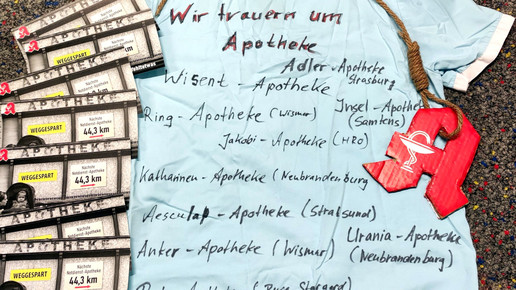 Wir trauern um
Apotheke
Adler-Apotheke
Strasburg
Wisent - Apotheke
Ring - Apotheke (Wismar)
Insel-Apothe
(Samtens)
Jakobi - Apotheke (HRO)
Katharinen - Apotheke (Neubrandenburg
Aesculap - Apotheke (Stralsund)
Urania - Apotheke
(Neubrandenburg)
Anker - Apotheke (Wismar)
APOTHEKE
WEGGESPART
Nächste
Notdienst-Apotheke
44,3 km
APOTHEKE
WEGGESPART
Nächste
Notdienst-Apotheke
44,3 km
APOTHEKE
WEGGESPART
Nächste
Notdienst-Apotheke
44,3 km
APOTHEKE
WEGGESPART
Nächste
Notdienst-Apotheke
44,3 km